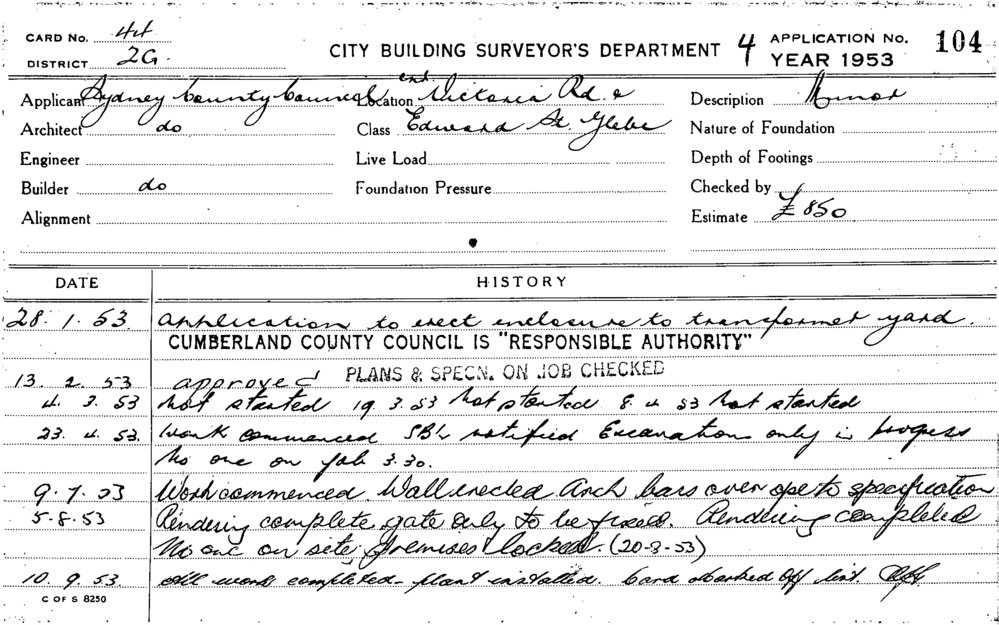 CARD No. 44
DISTRICT 2G.
CITY BUILDING SURVEYOR'S DEPARTMENT 4
APPLICATION No. 104
YEAR 1953
Applicant Sydney County Council Location cnr. Victoria Rd. & Description Minor
Architect do Class Edward St. Glebe Nature of Foundation
Engineer Live Load Depth of Footings
Builder do Foundation Pressure Checked by
Alignment Estimate £850
DATE HISTORY
28. 1. 53. Application to erect enclosure to transformer yard.
CUMBERLAND COUNTY COUNCIL IS "RESPONSIBLE AUTHORITY"
13. 2. 53 approved PLANS & SPECN. ON JOB CHECKED
4. 3. 53 Not started 19. 3. 53 Not started 8. 4. 53 Not started
23. 4. 53. Work commenced notified Excavation only in progress
No one on job 3.30.
9. 7. 53 Work commenced. Wall erected Arch bars over ope to specification
5. 8. 53 Rendering complete gate only to be fixed. Rendering completed
No one on site, premises locked. (20-8-53)
10. 9. 53 All work completed - plant installed. Card marked off list
C OF S 8250